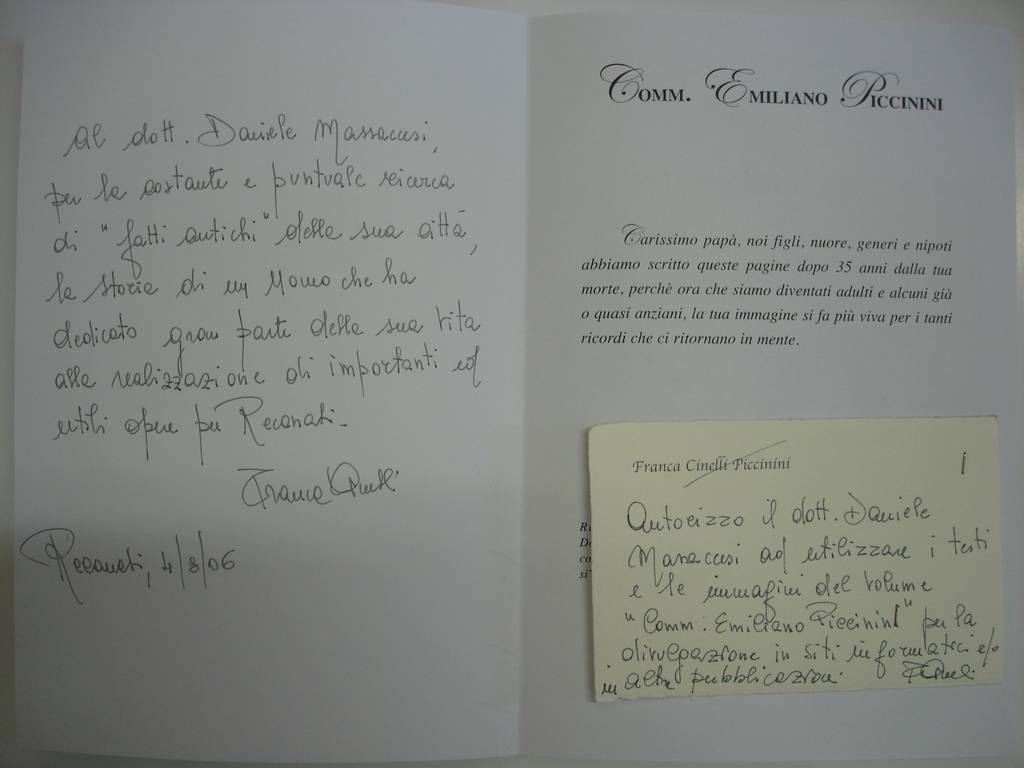 Al dott. Daniele Massaccesi,
per la costante e puntuale ricerca
di "fatti antichi" della sua città,
la storia di un Uomo che ha
dedicato gran parte della sua vita
alla realizzazione di importanti ed
utili opere per Recanati.
Franca Cinelli
Recanati, 4/8/06
Comm. Emiliano Piccinini
Carissimo papà, noi figli, nuore, generi e nipoti
abbiamo scritto queste pagine dopo 35 anni dalla tua
morte, perchè ora che siamo diventati adulti e alcuni già
o quasi anziani, la tua immagine si fa più viva per i tanti
ricordi che ci ritornano in mente.
Franca Cinelli Piccinini
Autorizzo il dott. Daniele
Massaccesi ad utilizzare i testi
e le immagini del volume
"Comm. Emiliano Piccinini" per la
divulgazione in siti informatici e/o
in altre pubblicazioni.